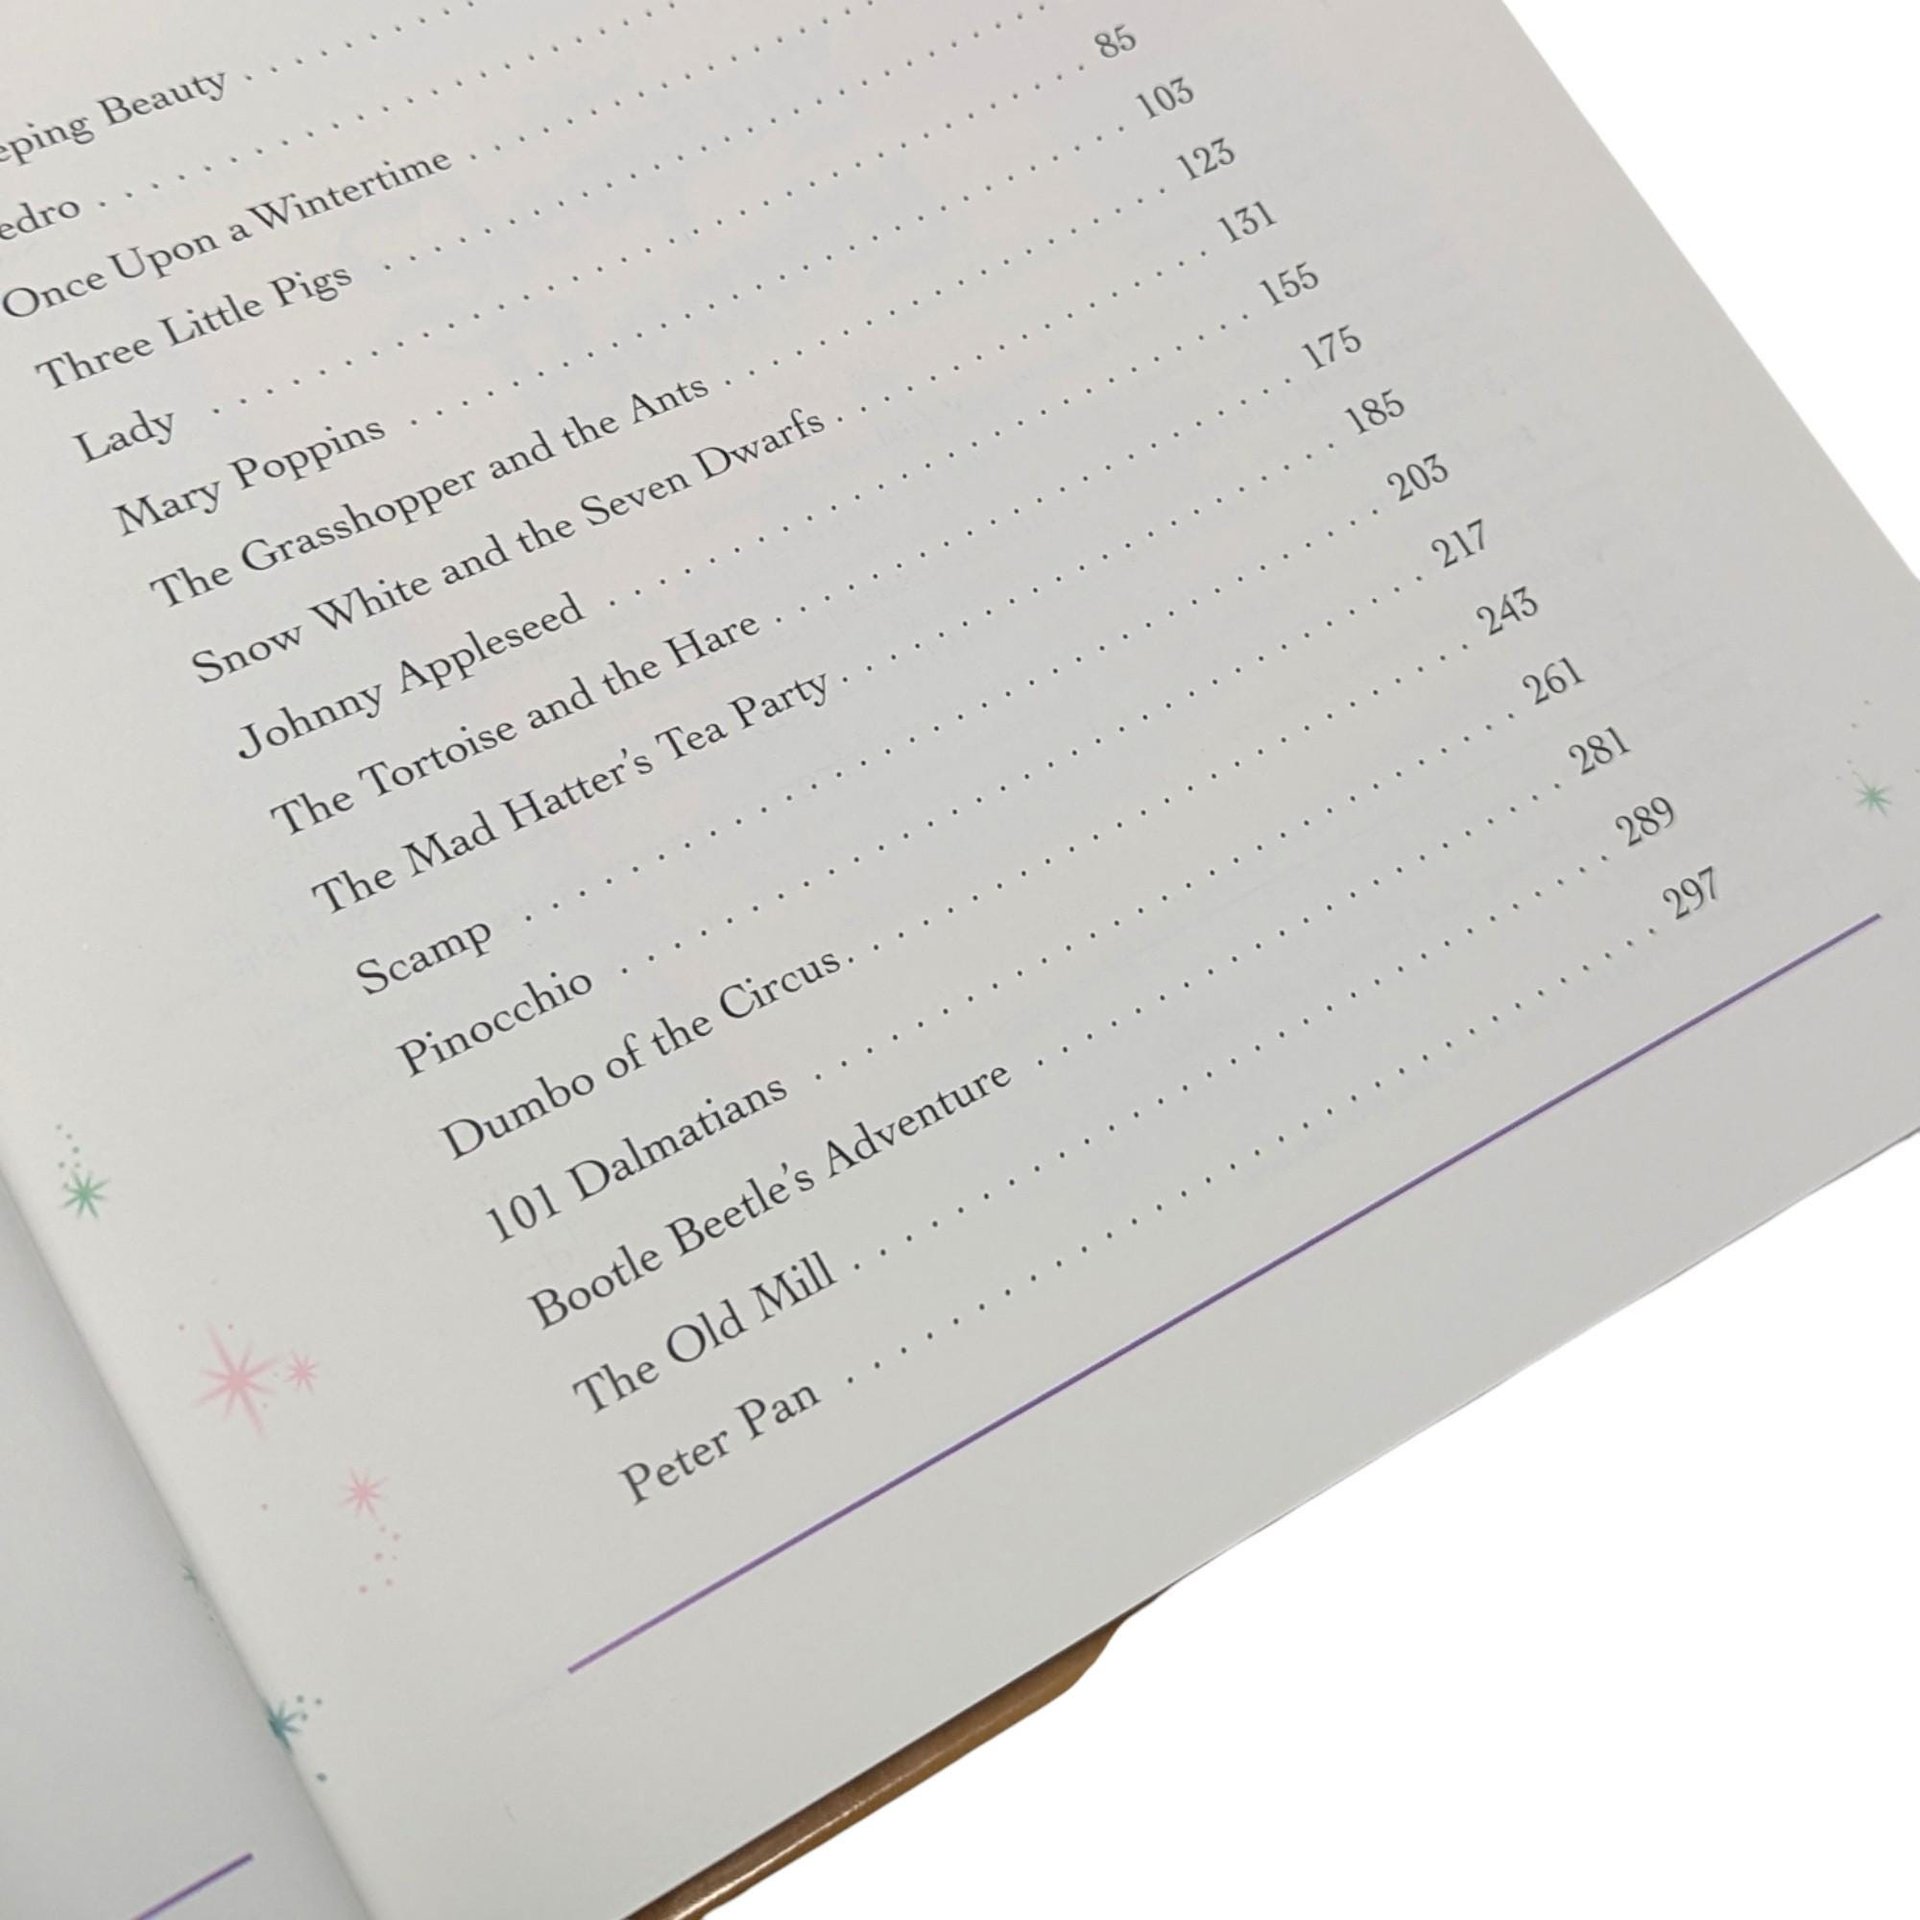 eping Beauty
edro
Once Upon a Wintertime
Three Little Pigs
Lady 85
Mary Poppins 103
The Grasshopper and the Ants 123
Snow White and the Seven Dwarfs 131
Johnny Appleseed 155
The Tortoise and the Hare 175
The Mad Hatter's Tea Party 185
Scamp 203
Pinocchio 217
Dumbo of the Circus 243
101 Dalmatians 261
Bootle Beetle's Adventure 281
The Old Mill 289
Peter Pan 297